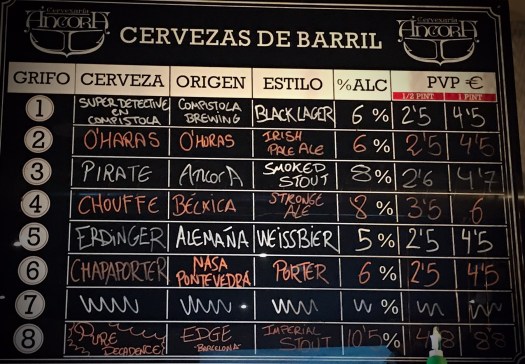 Cervexaría
ÁNCORA
CERVEZAS DE BARRIL
Cervexaría
ÁNCORA
GRIFO CERVEZA ORIGEN ESTILO %ALC PVP €
1/2 PINT 1 PINT
1 SUPER DETECTIVE EN COMPISTOLA COMPISTOLA BREWING BLACK LAGER 6 % 2'5 4'5
2 O'HARAS O'HORAS IRISH PALE ALE 6 % 2'5 4'5
3 PIRATE ANCORA SMOKED STOUT 8 % 2'6 4'7
4 CHOUFFE BÉLXICA STRONGE ALE 8 % 3'5 6
5 ERDINGER ALEMAÑA WEISSBIER 5 % 2'5 4'5
6 CHAPAPORTER NASA PONTEVEDRA PORTER 6 % 2'5 4'5
7 %
8 PURE DECADENCE EDGE BARCELONA IMPERIAL STOUT 10'5 % 8'8